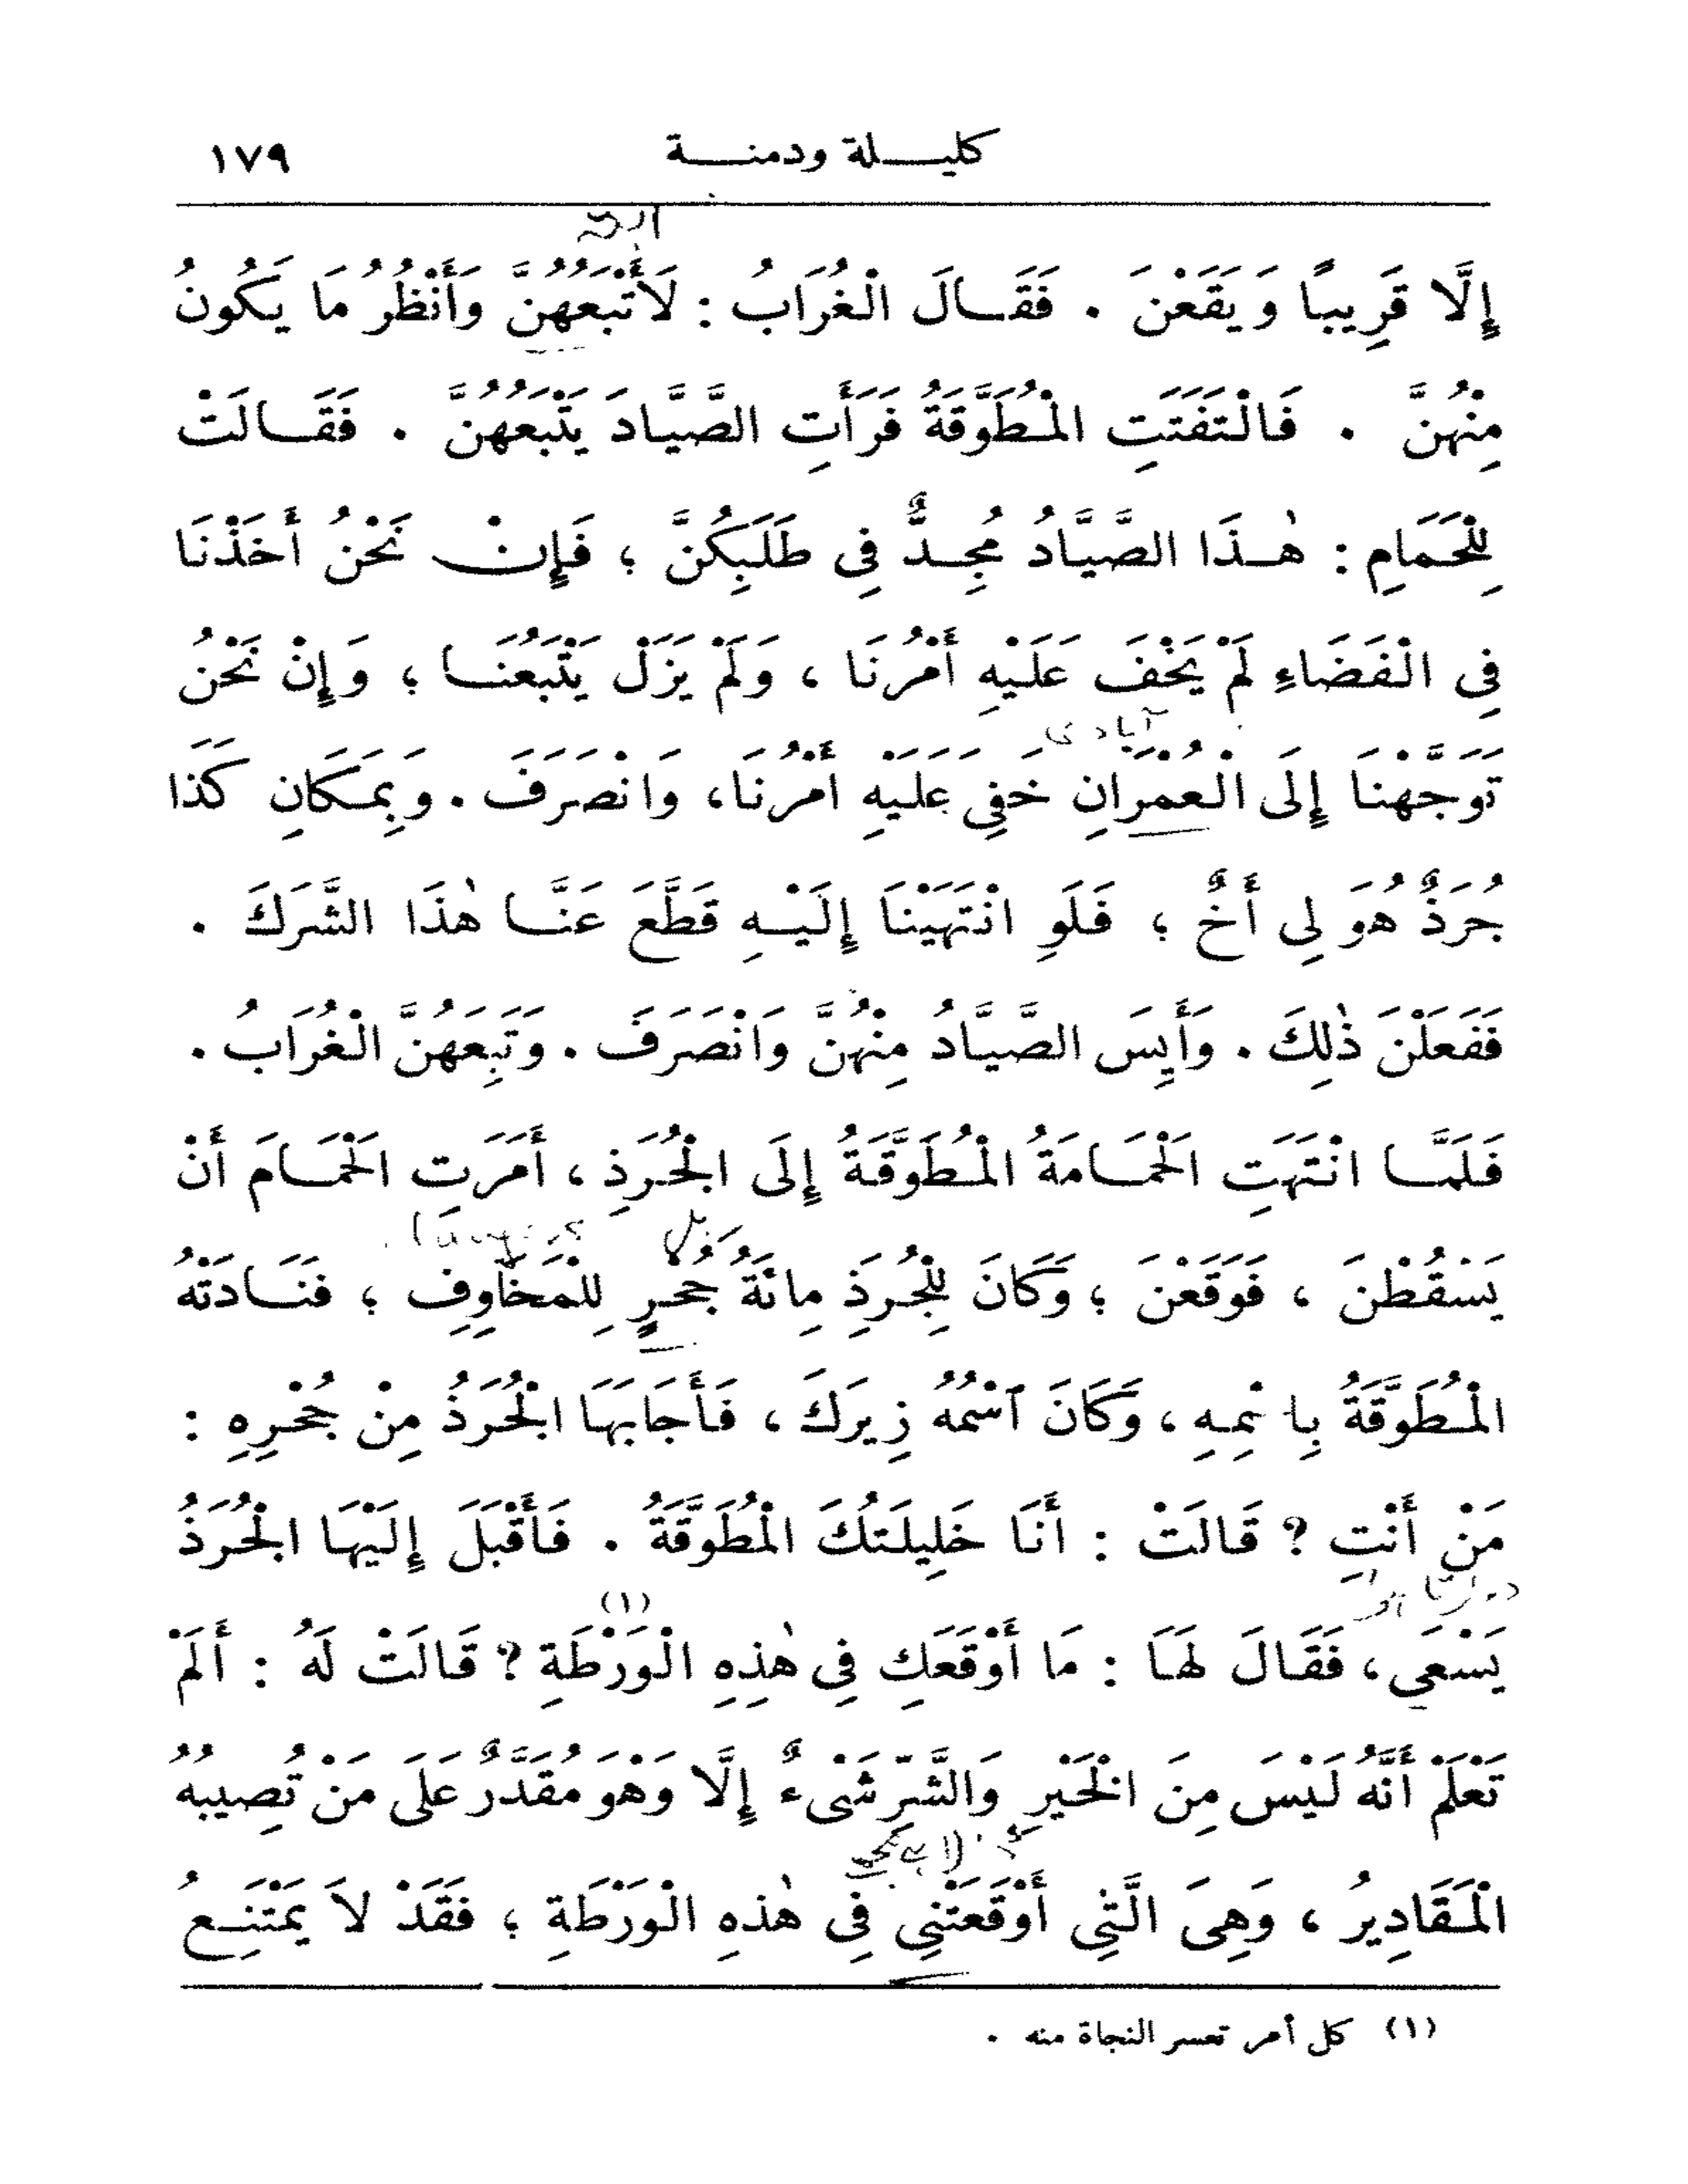 كليلة ودمنة ١٧٩
إِلَّا قَرِيبًا وَيَقَعْنَ . فَقَالَ الْغُرَابُ : لَأَتْبَعُهُنَّ وَأَنْظُرُ مَا يَكُونُ
مِنْهُنَّ . فَالْتَفَتَتِ الْمُطَوَّقَةُ فَرَأَتِ الصَّيَّادَ يَتْبَعُهُنَّ . فَقَالَتْ
لِلْحَمَامِ : هٰذَا الصَّيَّادُ مُجِدٌّ فِى طَلَبِكُنَّ ؛ فَإِنْ نَحْنُ أَخَذْنَا
فِى الْفَضَاءِ لَمْ يَخْفَ عَلَيْهِ أَمْرُنَا ، وَلَمْ يَزَلْ يَتْبَعُنَا ؛ وَإِنْ نَحْنُ
آبادى
تَوَجَّهْنَا إِلَى الْعُمْرَانِ خَفِىَ عَلَيْهِ أَمْرُنَا، وَانْصَرَفَ . وَبِمَكَانِ كَذَا
جُرَذٌ هُوَ لِى أَخٌ ؛ فَلَوِ انْتَهَيْنَا إِلَيْهِ قَطَّعَ عَنَّا هٰذَا الشَّرَكَ .
فَفَعَلْنَ ذٰلِكَ . وَأَيِسَ الصَّيَّادُ مِنْهُنَّ وَانْصَرَفَ . وَتَبِعَهُنَّ الْغُرَابُ .
فَلَمَّا انْتَهَتِ الْحَمَامَةُ الْمُطَوَّقَةُ إِلَى الْجُرَذِ ، أَمَرَتِ الْحَمَامَ أَنْ
يَسْقُطْنَ ، فَوَقَعْنَ ؛ وَكَانَ لِلْجُرَذِ مِائَةُ جُحْرٍ لِلْمَخَاوِفِ ؛ فَنَادَتْهُ
الْمُطَوَّقَةُ بِاسْمِهِ ، وَكَانَ ٱسْمُهُ زِيرَكَ ، فَأَجَابَهَا الْجُرَذُ مِنْ جُحْرِهِ :
مَنْ أَنْتِ ? قَالَتْ : أَنَا خَلِيلَتُكَ الْمُطَوَّقَةُ . فَأَقْبَلَ إِلَيْهَا الْجُرَذُ
يَسْعَى ، فَقَالَ لَهَا : مَا أَوْقَعَكِ فِى هٰذِهِ الْوَرْطَةِ (١) ? قَالَتْ لَهُ : أَلَمْ
تَعْلَمْ أَنَّهُ لَيْسَ مِنَ الْخَيْرِ وَالشَّرِّ شَىْءٌ إِلَّا وَهْوَ مُقَدَّرٌ عَلَى مَنْ تُصِيبُهُ
الْمَقَادِيرُ ، وَهِىَ الَّتِى أَوْقَعَتْنِى فِى هٰذِهِ الْوَرْطَةِ ؛ فَقَدْ لاَ يَمْتَنِعُ
(١) كل أمر تعسر النجاة منه .